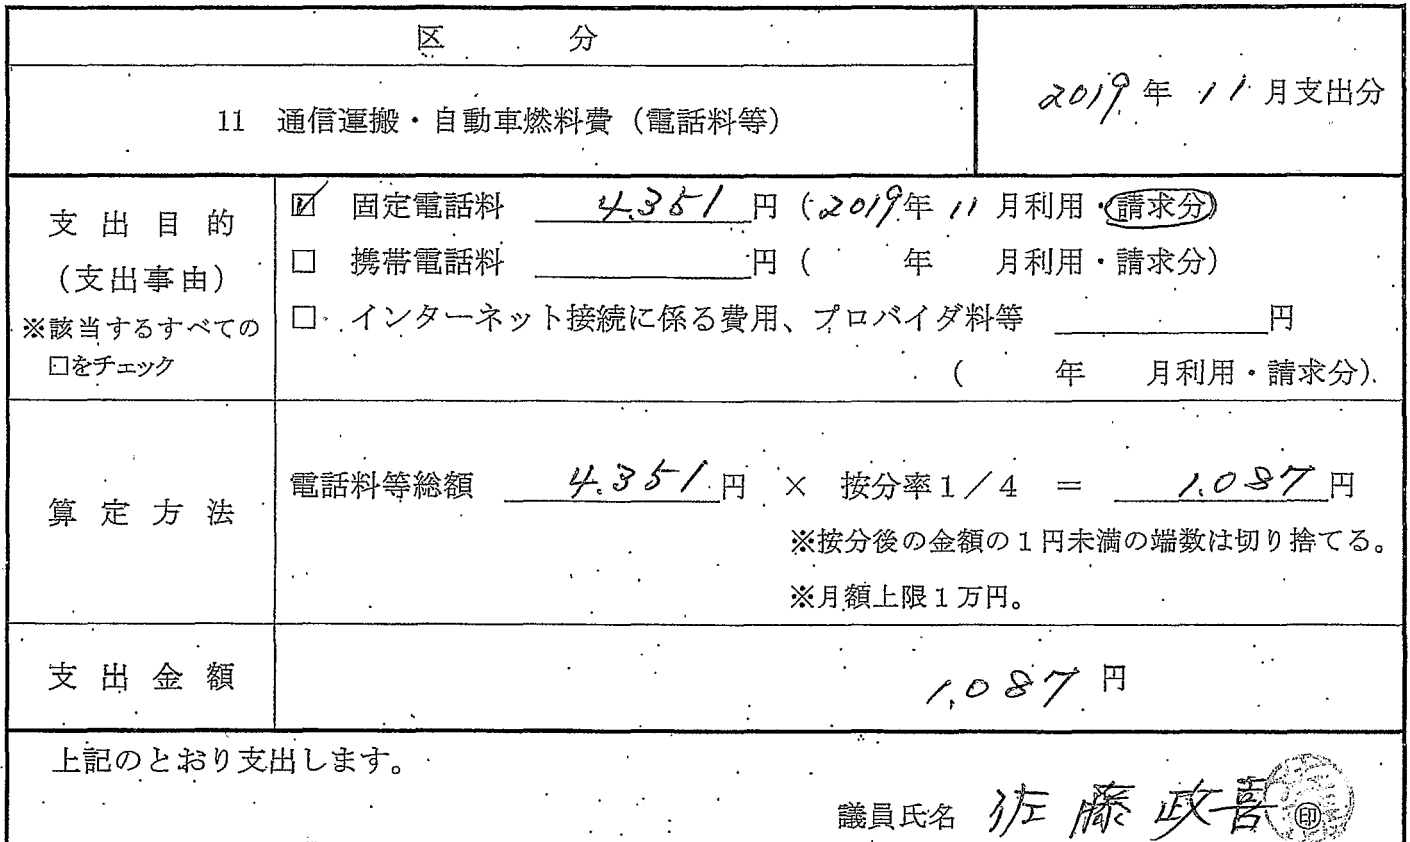 区 分
11 通信運搬・自動車燃料費（電話料等）
2019年 11月支出分
支出目的
（支出事由）
※該当するすべての
□をチェック
☑ 固定電話料 4,351円（2019年 11月利用・請求分）
□ 携帯電話料 円（ 年 月利用・請求分）
□ インターネット接続に係る費用、プロバイダ料等 円
（ 年 月利用・請求分）
算定方法
電話料等総額 4,351円 × 按分率1／4 ＝ 1,087円
※按分後の金額の1円未満の端数は切り捨てる。
※月額上限1万円。
支出金額
1,087円
上記のとおり支出します。
議員氏名 佐藤政喜 ㊞